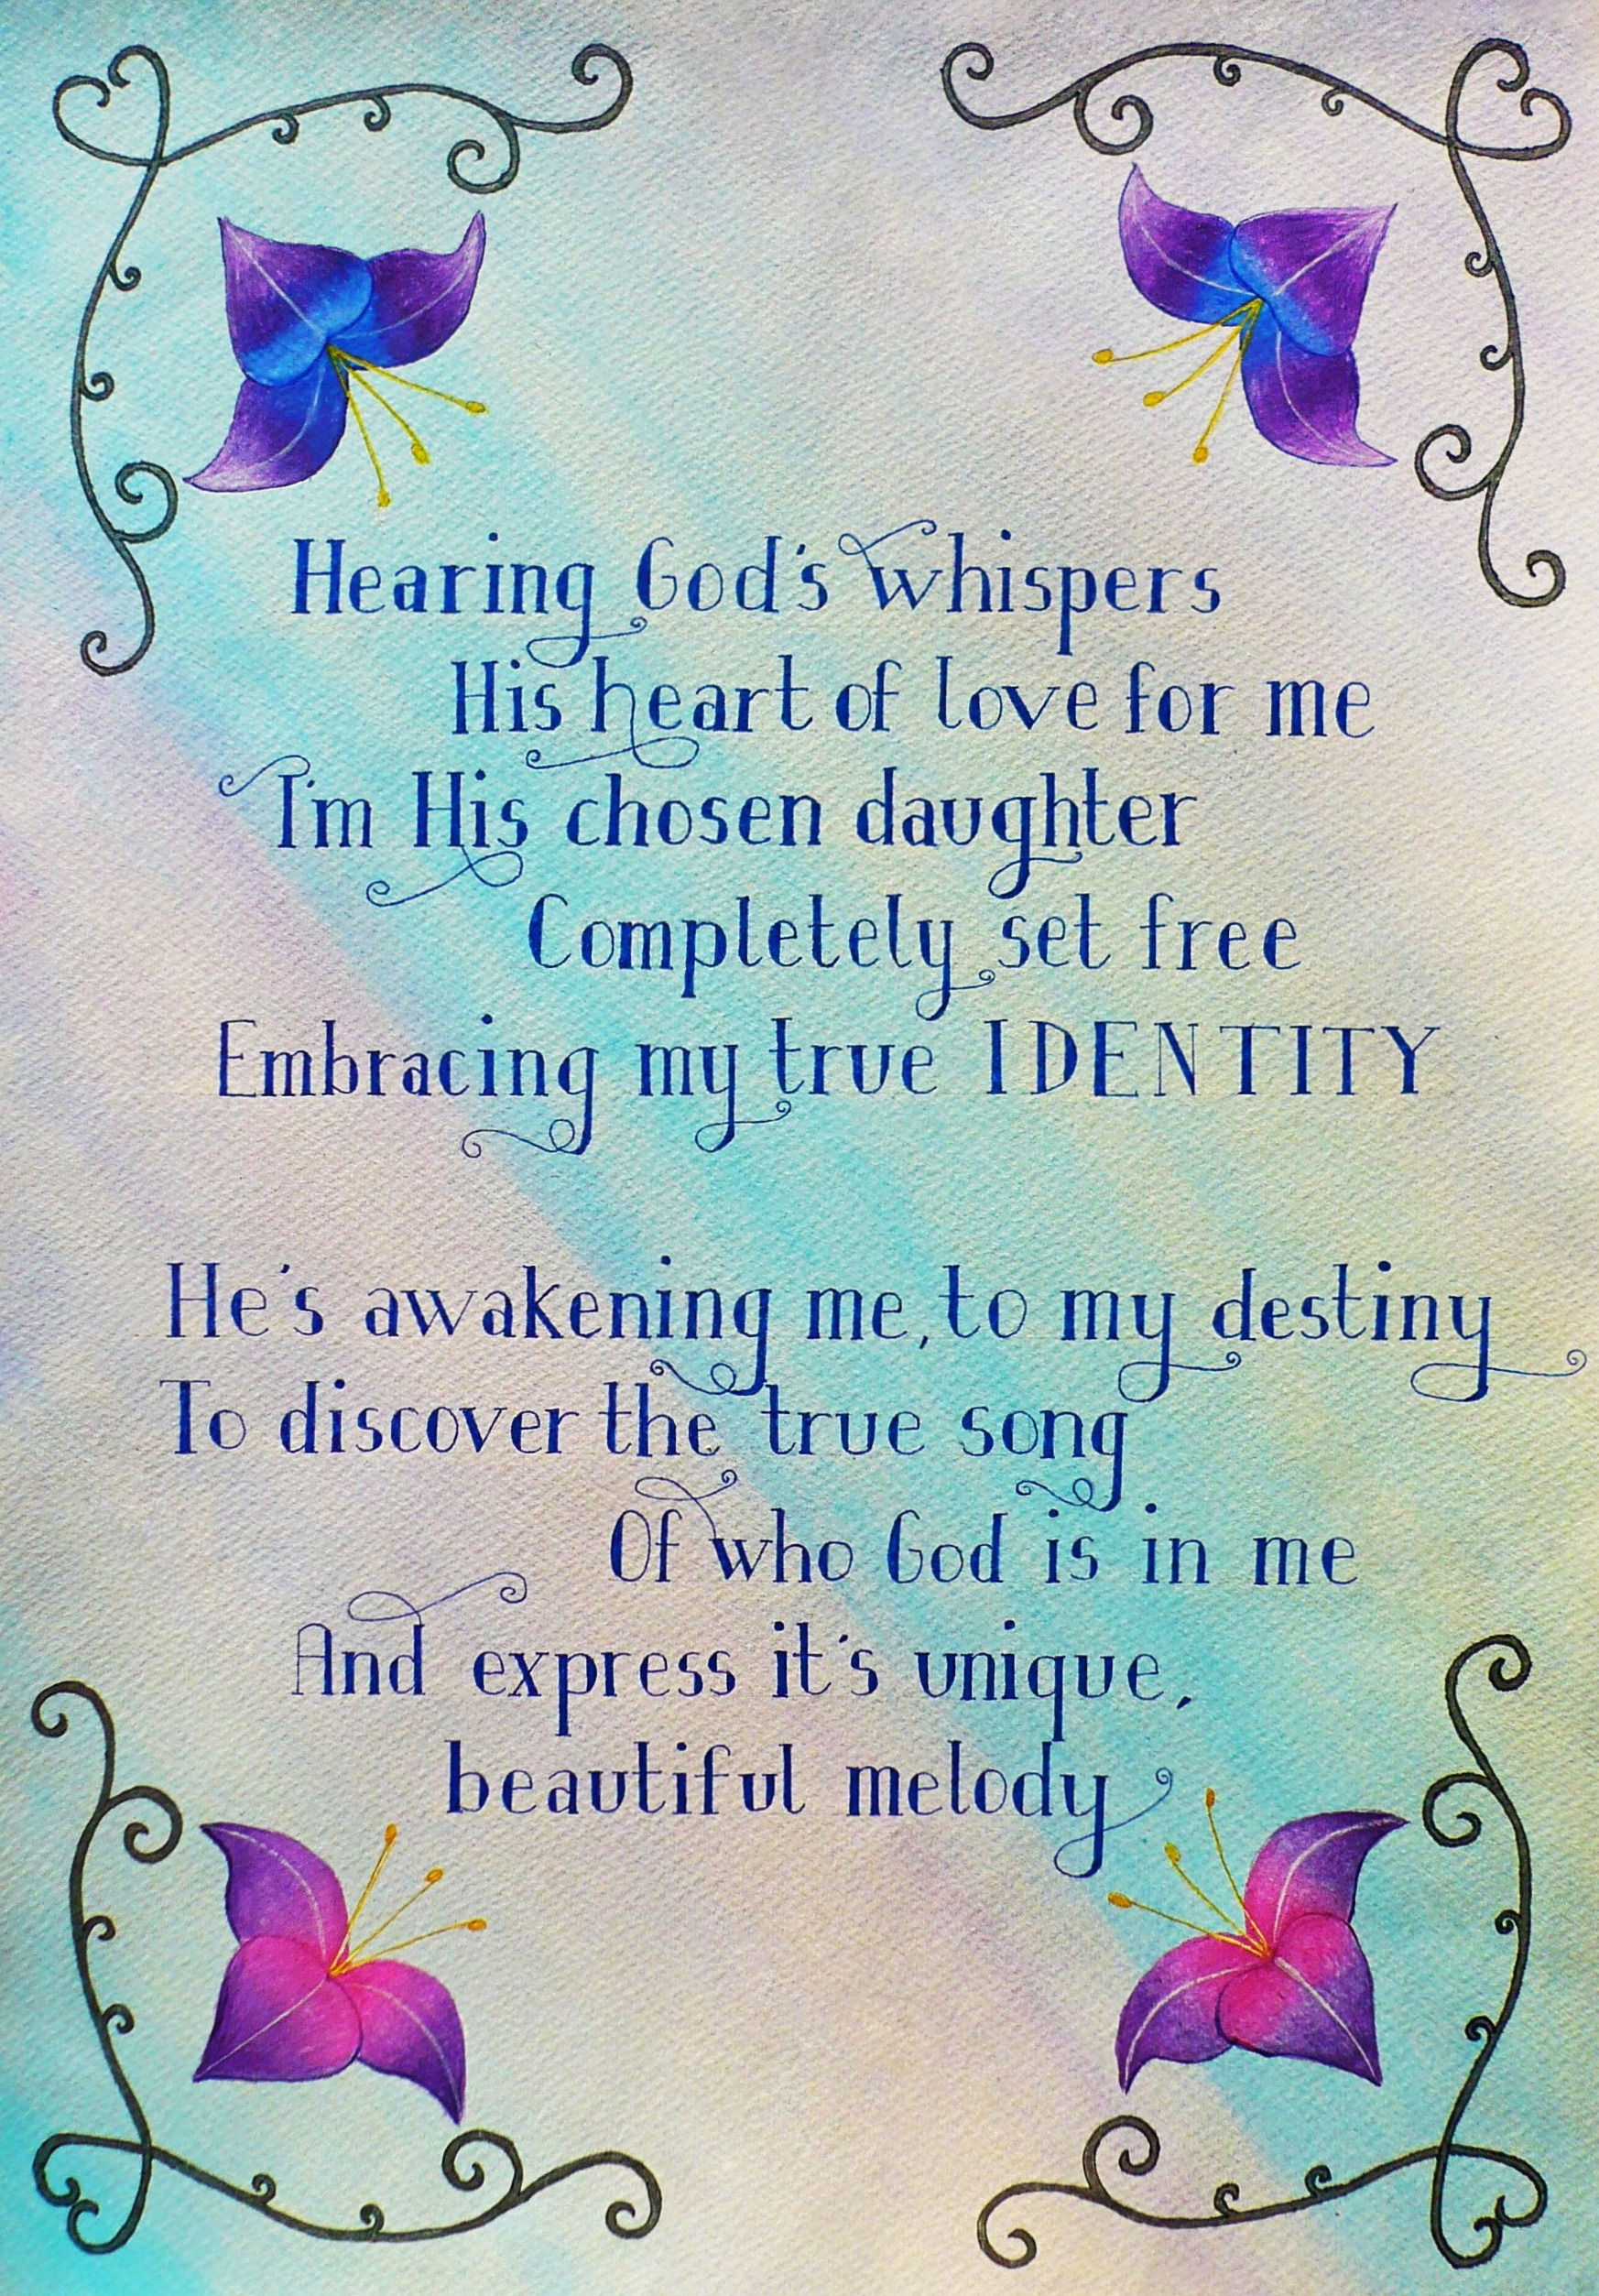 Hearing God's whispers
His heart of love for me
I'm His chosen daughter
Completely set free
Embracing my true IDENTITY
He's awakening me, to my destiny
To discover the true song
Of who God is in me
And express it's unique,
beautiful melody